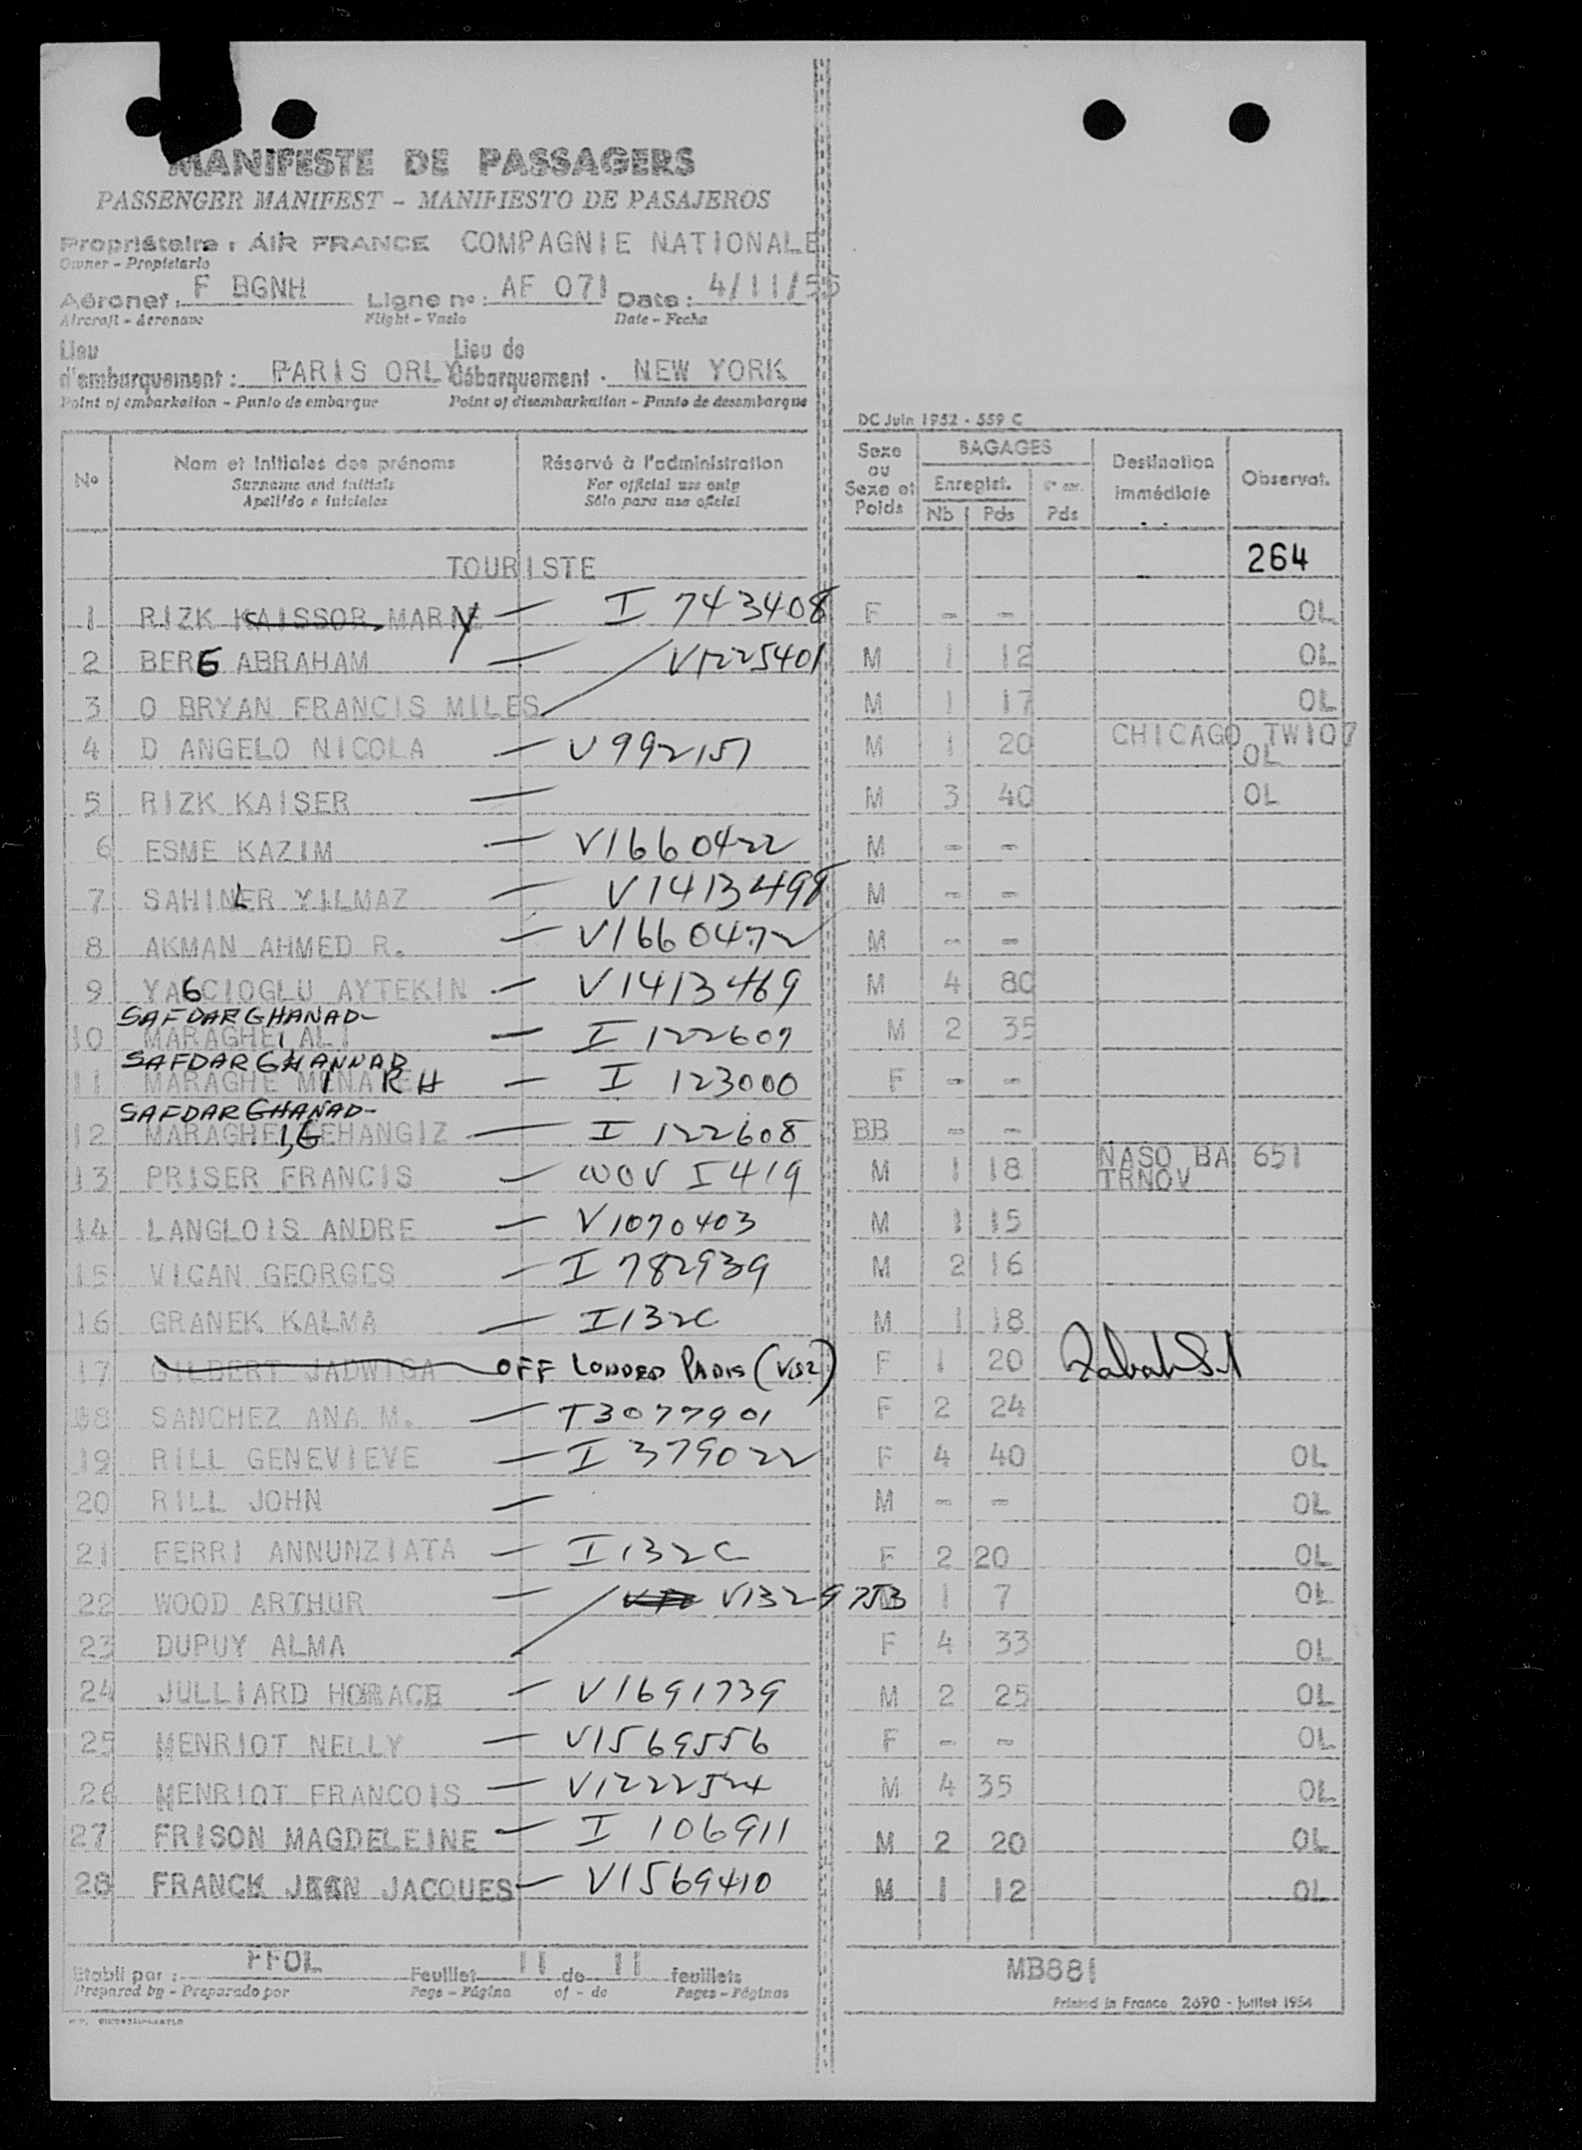 MANIFESTE DE PASSAGERS
PASSENGER MANIFEST - MANIFIESTO DE PASAJEROS
Propriétaire : AIR FRANCE COMPAGNIE NATIONALE
Owner - Propietario
Aéronef : F BGNH Ligne no : AF 071 Date : 4/11/55
Aircraft - Aeronave Flight - Vuelo Date - Fecha
Lieu d'embarquement : PARIS ORLY Lieu de débarquement : NEW YORK
Point of embarkation - Punto de embarque Point of disembarkation - Punto de desembarque
DC Juin 1952 - 559 C
No Nom et initiales des prénoms Réservé à l'administration Sexe ou Sexe et Poids BAGAGES Destination immédiate Observat.
Surname and initials For official use only Enregist.
Apellido e iniciales Sólo para uso oficial Nb Pds Pds
TOURISTE 264
1 RIZK KAISSOR MARIE Y — I 743408 F - - OL
2 BERG ABRAHAM — V1225401 M 1 12 OL
3 O BRYAN FRANCIS MILES M 1 17 OL
4 D ANGELO NICOLA — V992151 M 1 20 CHICAGO TW107 OL
5 RIZK KAISER — M 3 40 OL
6 ESME KAZIM — V1660422 M - -
7 SAHINLER YILMAZ — V1413498 M - -
8 AKMAN AHMED R. — V1660472 M - -
9 YAGCIOGLU AYTEKIN — V1413469 M 4 80
SAFDARGHANAD-
10 MARAGHEI, ALI — I 122607 M 2 35
SAFDARGHANNAD
11 MARAGHE RH — I 123000 F - -
SAFDARGHANAD-
12 MARAGHEI, GEHANGIZ — I 122608 BB - -
13 PRISER FRANCIS — WOV I419 M 1 18 NASO BA 651 TRNOV
14 LANGLOIS ANDRE — V1070403 M 1 15
15 VIGAN GEORGES — I 782939 M 2 16
16 GRANEK KALMA — I132C M 1 18
17 GILDERT JADWIGA OFF LOADED PARIS (VISA) F 1 20
18 SANCHEZ ANA M. — T3077901 F 2 24
19 RILL GENEVIEVE — I 379022 F 4 40 OL
20 RILL JOHN — M - - OL
21 FERRI ANNUNZIATA — I132C F 2 20 OL
22 WOOD ARTHUR — V1329753 M 1 7 OL
23 DUPUY ALMA F 4 33 OL
24 JULLIARD HORACE — V1691739 M 2 25 OL
25 HENRIOT NELLY — V1569556 F - - OL
26 HENRIOT FRANCOIS — V1222524 M 4 35 OL
27 FRISON MAGDELEINE — I 106911 M 2 20 OL
28 FRANCK JEAN JACQUES — V1569410 M 1 12 OL
Etabli par : FFOL Feuillet 11 de 11 feuillets MB881
Prepared by - Preparado por Page - Página of - de Pages - Páginas Printed in France 2690 - Juillet 1954